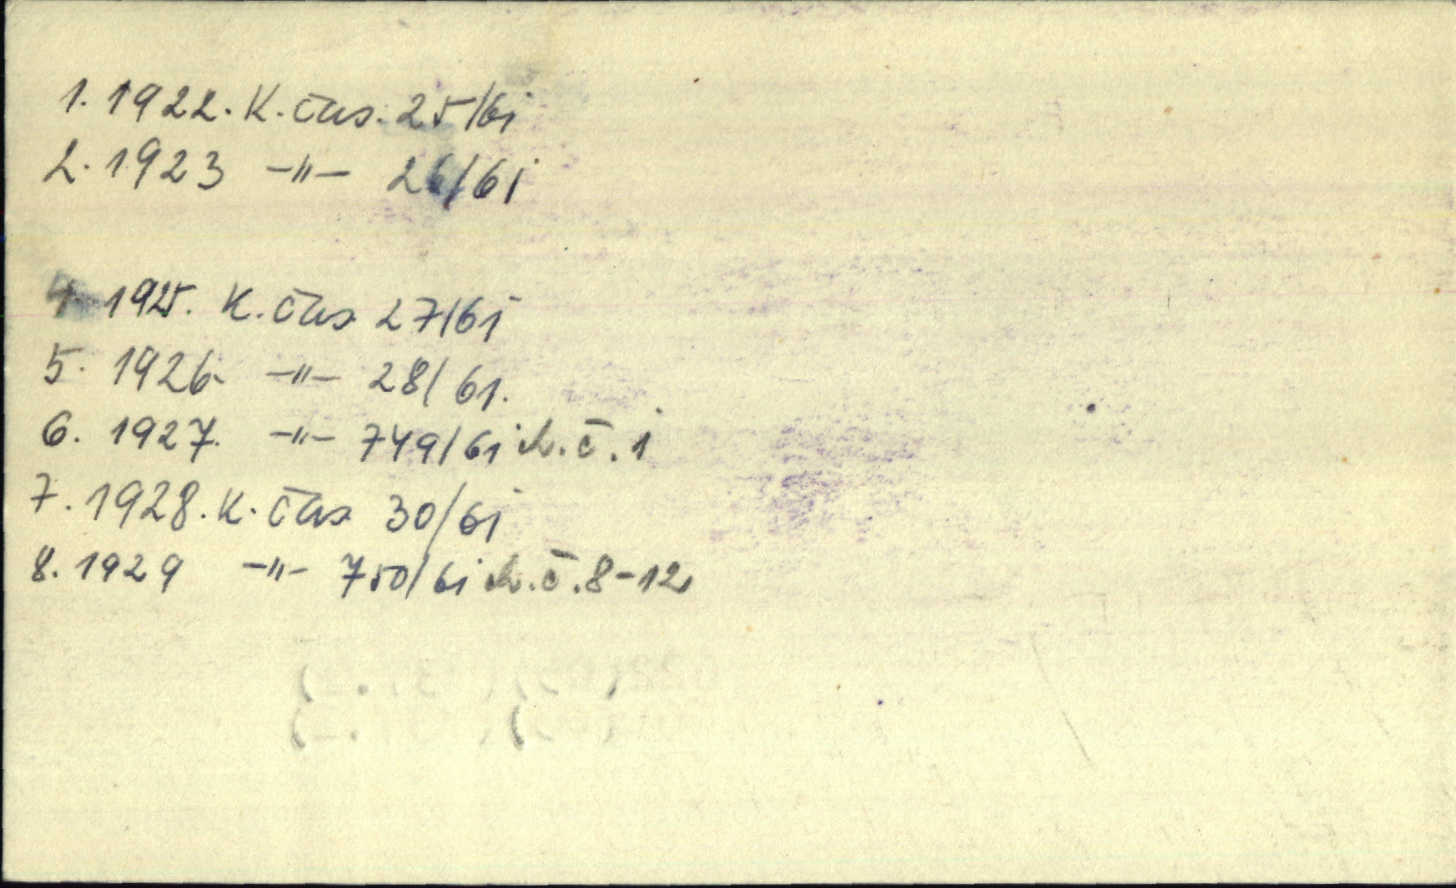 1. 1922. K. čas. 25/61
2. 1923 -"- 26/61
4. 1925. K. čas 27/61
5. 1926. -"- 28/61.
6. 1927. -"- 749/61 ch. č. 1
7. 1928. K. čas 30/61
8. 1929 -"- 750/61 ch. č. 8-12